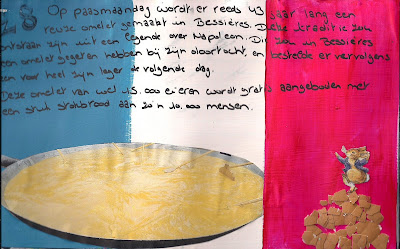 Op paasmaandag wordt er reeds 43 jaar lang een
reuze omelet gemaakt in Bessières. Deze traditie zou
ontstaan zijn uit een legende over Napoleon. Die zou in Bessières
een omelet gegeten hebben bij zijn doortocht, en bestelde er vervolgens
een voor heel zijn leger de volgende dag.
Deze omelet van wel 15.000 eieren wordt gratis aangeboden met
een stuk stokbrood aan zo'n 10.000 mensen.